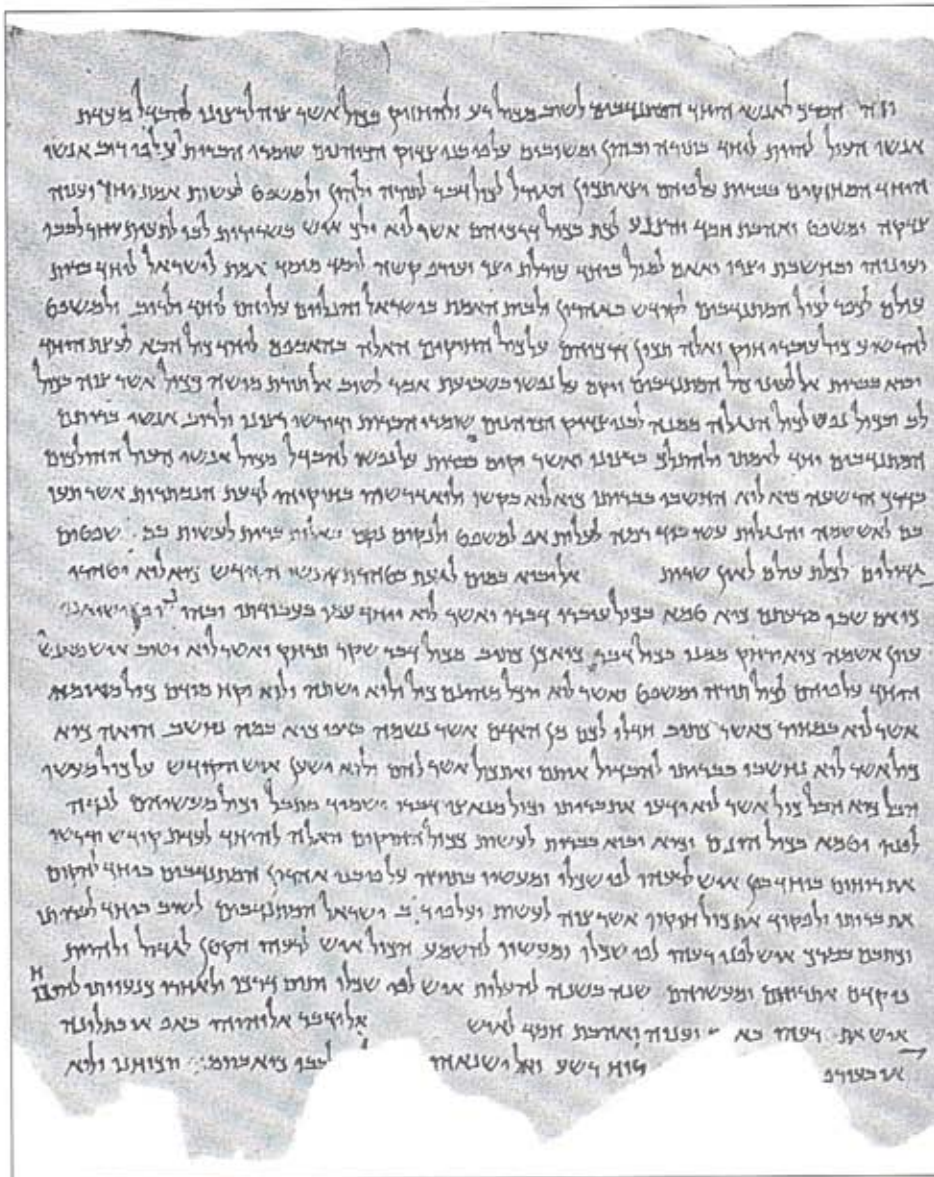 וזה הסרך לאנשי היחד המתנדבים לשוב מכול רע ולהחזיק בכול אשר צוה לרצונו להבדל מעדת
אנשי העול להיות ליחד בתורה ובהון ומשובים על פי בני צדוק הכוהנים שומרי הברית ועל פי רוב אנשי
היחד המחזקים בברית על פיהם יצא תכון הגורל לכול דבר לתורה ולהון ולמשפט לעשות אמת יחד וענוה
צדקה ומשפט ואהבת חסד והצנע לכת בכול דרכיהם אשר לוא ילך איש בשרירות לבו לתעות אחר לבבו
ועינוהי ומחשבת יצרו ואאם למול ביחד עורלת יצר ועורף קשה ליסד מוסד אמת לישראל ליחד ברית
עולם לכפר לכול המתנדבים לקודש באהרון ולבית האמת בישראל והנלוים עליהם ליחד ולריב ולמשפט
להרשיע כול עוברי חוק ואלה תכון דרכיהם על כול החוקים האלה בהאספם ליחד כול הבא לעצת היחד
יבוא בברית אל לעיני כול המתנדבים ויקם על נפשו בשבועת אסר לשוב אל תורת מושה ככול אשר צוה בכול
לב ובכול נפש לכול הנגלה ממנה לבני צדוק הכוהנים שומרי הברית ודורשי רצונו ולרוב אנשי בריתם
המתנדבים יחד לאמתו ולהתלך ברצונו ואשר יקים בברית על נפשו להבדל מכול אנשי העול ההולכים
בדרך הרשעה כיא לוא החשבו בבריתו כיא לוא בקשו ולוא דרשוהו בחוקוהי לדעת הנסתרות אשר תעו
בם לאששמה והנגלות עשו ביד רמה לעלות אף למשפט ולנקום נקם באלות ברית לעשות בם שפטים
גדולים לכלת עולם לאין שרית אל יבוא במים לגעת בטהרת אנשי הקודש כיא לוא יטהרו
כיאם שבו מרעתם כיא טמא בכול עוברי דברו ואשר לוא ייחד עמו בעבודתו ובהונו פן ישיאנו
עוון אשמה כיא ירחק ממנו בכול דבר כיא כן כתוב מכול דבר שקר תרחק ואשר לוא ישוב איש מאנשי
היחד על פיהם לכול תורה ומשפט ואשר לוא יוכל מהונם כול ולוא ישתה ולוא יקח מידם כול מאומה
אשר לוא במחיר כאשר כתוב חדלו לכם מן האדם אשר נשמה באפו כיא במה נחשב הואה כיא
כול אשר לוא נחשבו בבריתו להבדיל אותם ואת כול אשר להם ולוא ישען איש הקודש על כול מעשי
הבל כיא הבל כול אשר לוא ידעו את בריתו וכול מנאצי דברו ישמיד מתבל וכול מעשיהם לנדה
לפניו וטמא בכול הונם וכיא יבוא בברית לעשות ככול החוקים האלה להיחד לעדת קודש ודרשו
את רוחום ביחד בין איש לרעהו לפי שכלו ומעשיו בתורה על פי בני אהרון המתנדבים ביחד להקים
את בריתו ולפקוד את כול חוקיו אשר צוה לעשות ועל פי רוב ישראל המתנדבים לשוב ביחד לבריתו
וכתבם בסרך איש לפני רעהו לפי שכלו ומעשיו להשמע הכול איש לרעהו הקטן לגדול ולהיות
פוקדם את רוחם ומעשיהם שנה בשנה להעלות איש לפי שכלו ותום דרכו ולאחרו כנעוותו להוכיח
איש את רעהו וענוה ואהבת חסד לאיש אל ידבר אלוהיהי באף או בתלונה
או בעורף רוח רשע ואל ישנאהו לבבו כיא ביום יוכיחנו ולוא